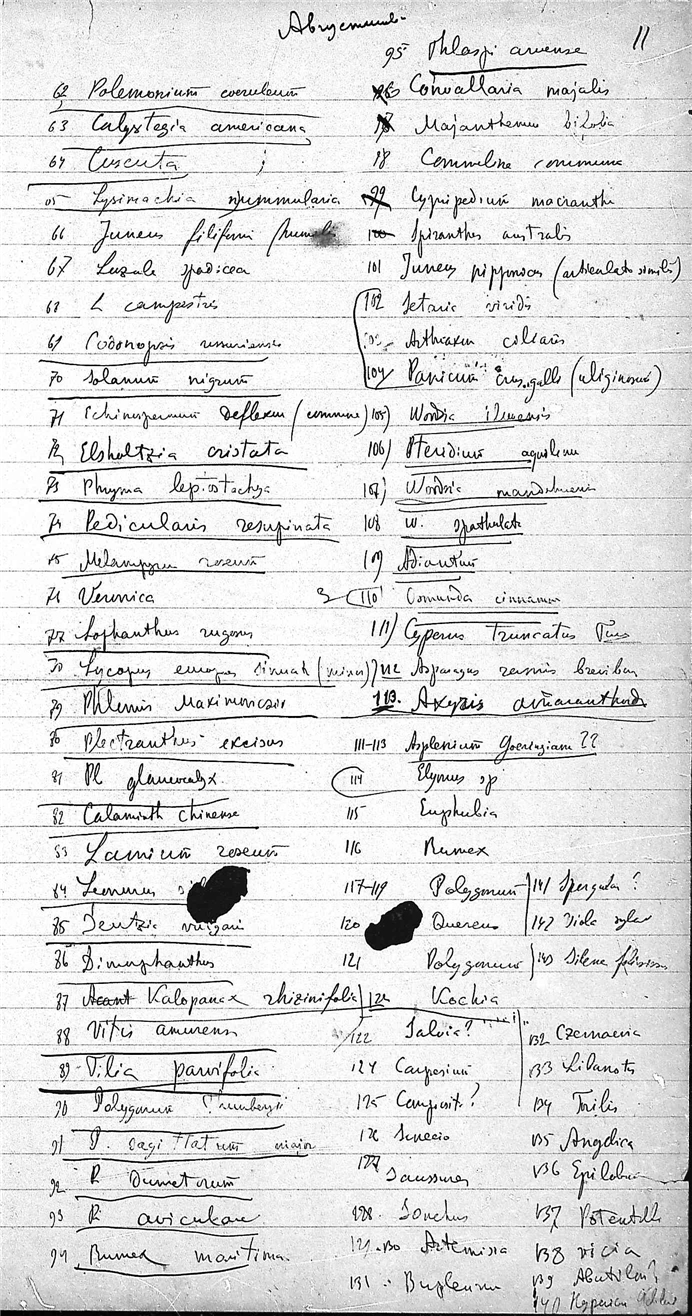 11
95 Thlaspi arvense
62 Polemonium coeruleum
63 Calystegia americana
64 Cuscuta ;
65 Lysimachia nummularia
66 Juncus filiformi
67 Luzula spadicea
68 L campestris
69 Codonopsis ussuriensis
70 Solanum nigrum
71 Echinospermum deflexum (commune)
72 Elsholtzia cristata
73 Phryma leptostachya
74 Pedicularis resupinata
75 Melampyrum roseum
76 Veronica
77 Lophanthus rugosus
78 Lycopus europ sinuat (minor)
79 Phlomis Maximoviczii
80 Plectranthus excisus
81 Pl glaucocalyx
82 Calaminth chinense
83 Lamium roseum
84 Leonurus
85 Deutzia
86 Dimorphanthus
87 Acant Kalopanax rhizinifolia
88 Vitis amurensis
89 Tilia parvifolia
90 Polygonum Thunbergii
91 P. sagittatum major
92 P. Dumetorum
93 P. aviculare
94 Rumex maritima
96 Convallaria majalis
97 Majanthemum bifolia
98 Commeline communa
99 Cypripedium macranthi
100 Spiranthes australis
101 Juncus nipponicus (articulato similis)
102 Setaria viridis
103 Arthraxon ciliaris
104 Panicum Crus.galli (uliginosum)
105) Woodsia ilvensis
106) Pteridium aquilinu
107) Woodsia mandshuriensis
108 W. spathulata
109) Adiantum
3 110 Osmunda cinnamom
111) Cyperus truncatus Turcs
112 Asparagus ramis brevibus
113. Axyris amaranthoides
111-113 Asplenium Goeringianum ??
114 Elymus sp
115 Euphubia
116 Rumex
117-119 Polygonum
120 Quercus
121 Polygonum
122 Kochia
122 Salvia?
124 Carpesium
125 Composit?
126 Senecio
127 Saussurea
128. Sonchus
129-130 Artemisia
131 - Bupleurum
141 Spergula ?
142 Viola sylva
143 Silene foliosissi
132 Czernaevia
133 Libanotis
134 Torilis
135 Angelica
136 Epilobium
137 Potentilla
138 vicia
139 Abutilon?
140 Hypericu